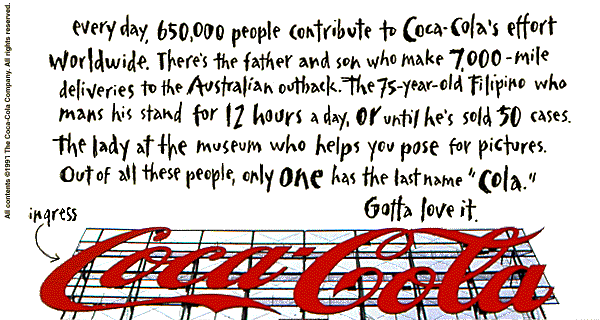 every day, 650,000 people contribute to Coca-Cola's effort
worldwide. There's the father and son who make 7,000-mile
deliveries to the Australian outback. The 75-year-old Filipino who
mans his stand for 12 hours a day, or until he's sold 50 cases.
The lady at the museum who helps you pose for pictures.
Out of all these people, only one has the last name "Cola."
Gotta love it.
ingress
Coca-Cola
All contents ©1991 The Coca-Cola Company. All rights reserved.